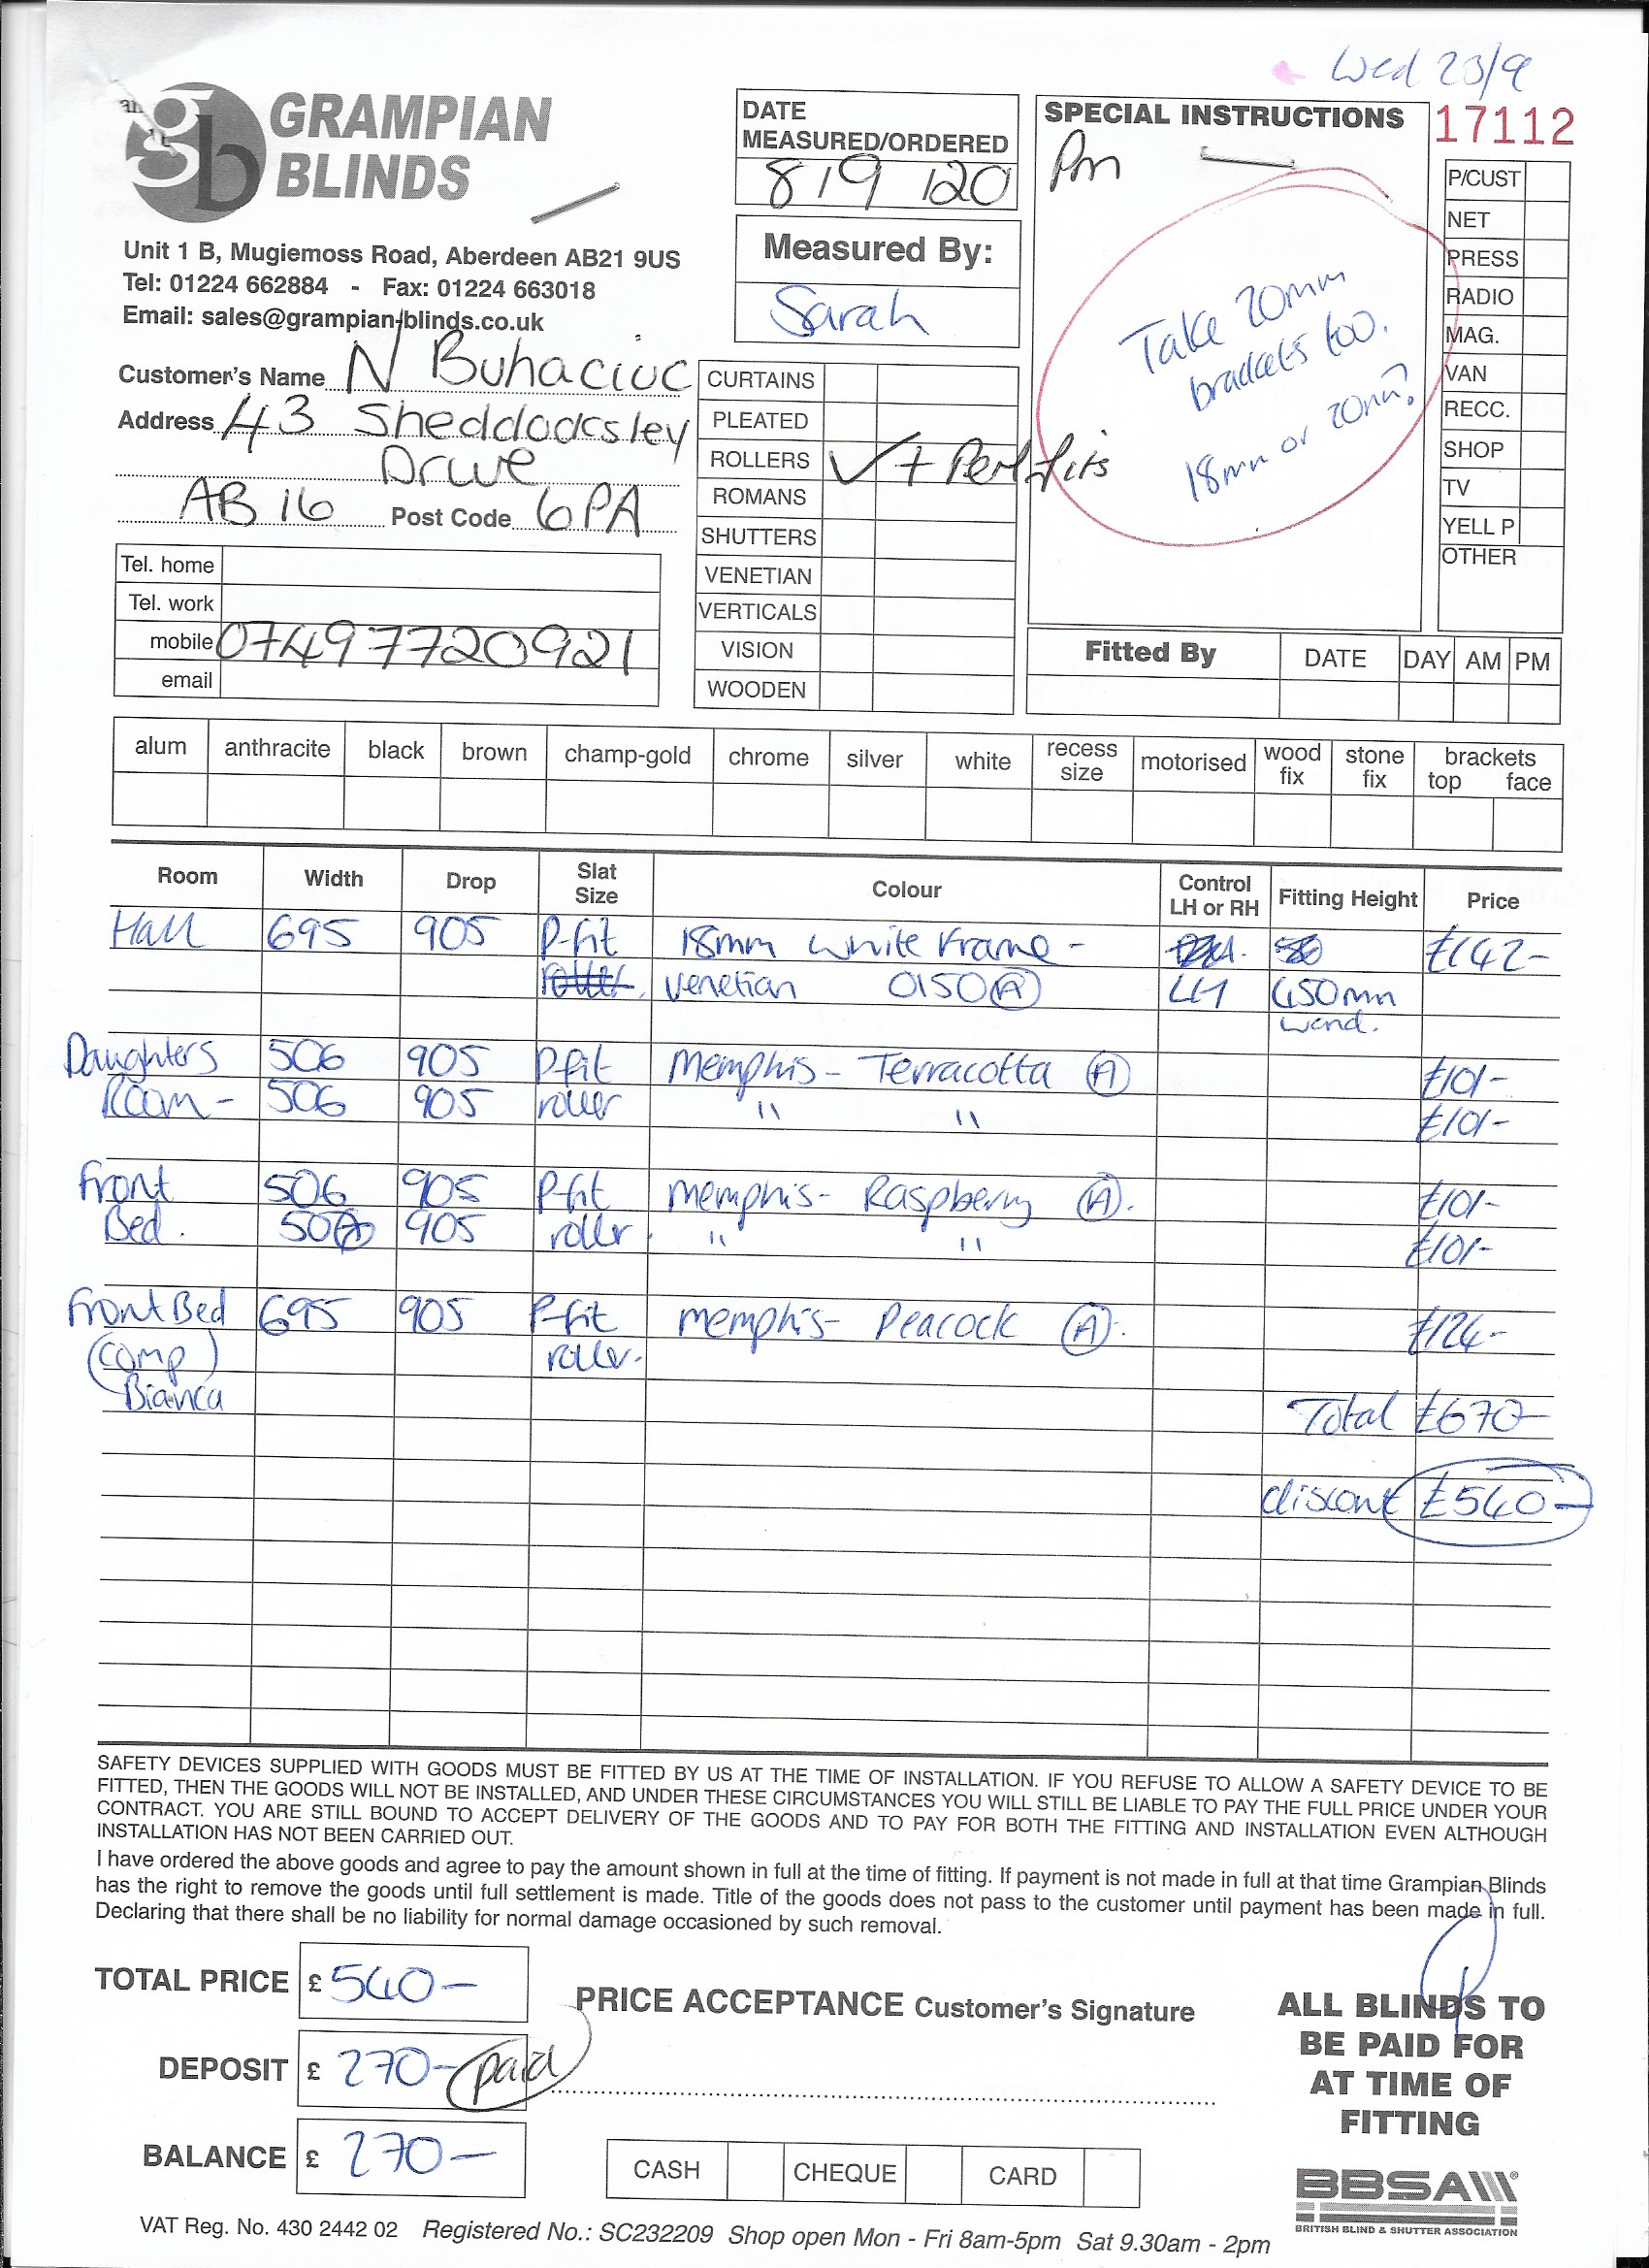 Wed 23/9
GRAMPIAN
BLINDS
Unit 1 B, Mugiemoss Road, Aberdeen AB21 9US
Tel: 01224 662884 - Fax: 01224 663018
Email: sales@grampian-blinds.co.uk
DATE
MEASURED/ORDERED
8/9/20
Measured By:
Sarah
SPECIAL INSTRUCTIONS
Pm
Take 20mm
brackets too.
18mm or 20mm?
17112
P/CUST
NET
PRESS
RADIO
MAG.
VAN
RECC.
SHOP
TV
YELL P
OTHER
Customer's Name N Buhaciuc
Address 43 Sheddocksley
Drive
AB16 Post Code 6PA
Tel. home
Tel. work
mobile 07497720921
email
CURTAINS
PLEATED
ROLLERS ✓ + Perf fits
ROMANS
SHUTTERS
VENETIAN
VERTICALS
VISION
WOODEN
Fitted By DATE DAY AM PM
alum anthracite black brown champ-gold chrome silver white recess size motorised wood fix stone fix brackets top face
Room Width Drop Slat Size Colour Control LH or RH Fitting Height Price
Hall 695 905 P-fit 18mm white Frame - £142-
venetian 0150 (A) LH 450mm
wand.
Daughters 506 905 P-fit Memphis - Terracotta (A) £101-
Room - 506 905 roller " " £101-
Front 506 905 P-fit Memphis - Raspberry (A). £101-
Bed. 506 905 roller. " " £101-
Front Bed 695 905 P-fit Memphis - Peacock (A). £124-
(comp) roller.
Bianca
Total £670-
discount £540-
SAFETY DEVICES SUPPLIED WITH GOODS MUST BE FITTED BY US AT THE TIME OF INSTALLATION. IF YOU REFUSE TO ALLOW A SAFETY DEVICE TO BE
FITTED, THEN THE GOODS WILL NOT BE INSTALLED, AND UNDER THESE CIRCUMSTANCES YOU WILL STILL BE LIABLE TO PAY THE FULL PRICE UNDER YOUR
CONTRACT. YOU ARE STILL BOUND TO ACCEPT DELIVERY OF THE GOODS AND TO PAY FOR BOTH THE FITTING AND INSTALLATION EVEN ALTHOUGH
INSTALLATION HAS NOT BEEN CARRIED OUT.
I have ordered the above goods and agree to pay the amount shown in full at the time of fitting. If payment is not made in full at that time Grampian Blinds
has the right to remove the goods until full settlement is made. Title of the goods does not pass to the customer until payment has been made in full.
Declaring that there shall be no liability for normal damage occasioned by such removal.
TOTAL PRICE £ 540-
DEPOSIT £ 270- paid
BALANCE £ 270-
PRICE ACCEPTANCE Customer's Signature
CASH CHEQUE CARD
ALL BLINDS TO
BE PAID FOR
AT TIME OF
FITTING
BBSA
BRITISH BLIND & SHUTTER ASSOCIATION
VAT Reg. No. 430 2442 02 Registered No.: SC232209 Shop open Mon - Fri 8am-5pm Sat 9.30am - 2pm